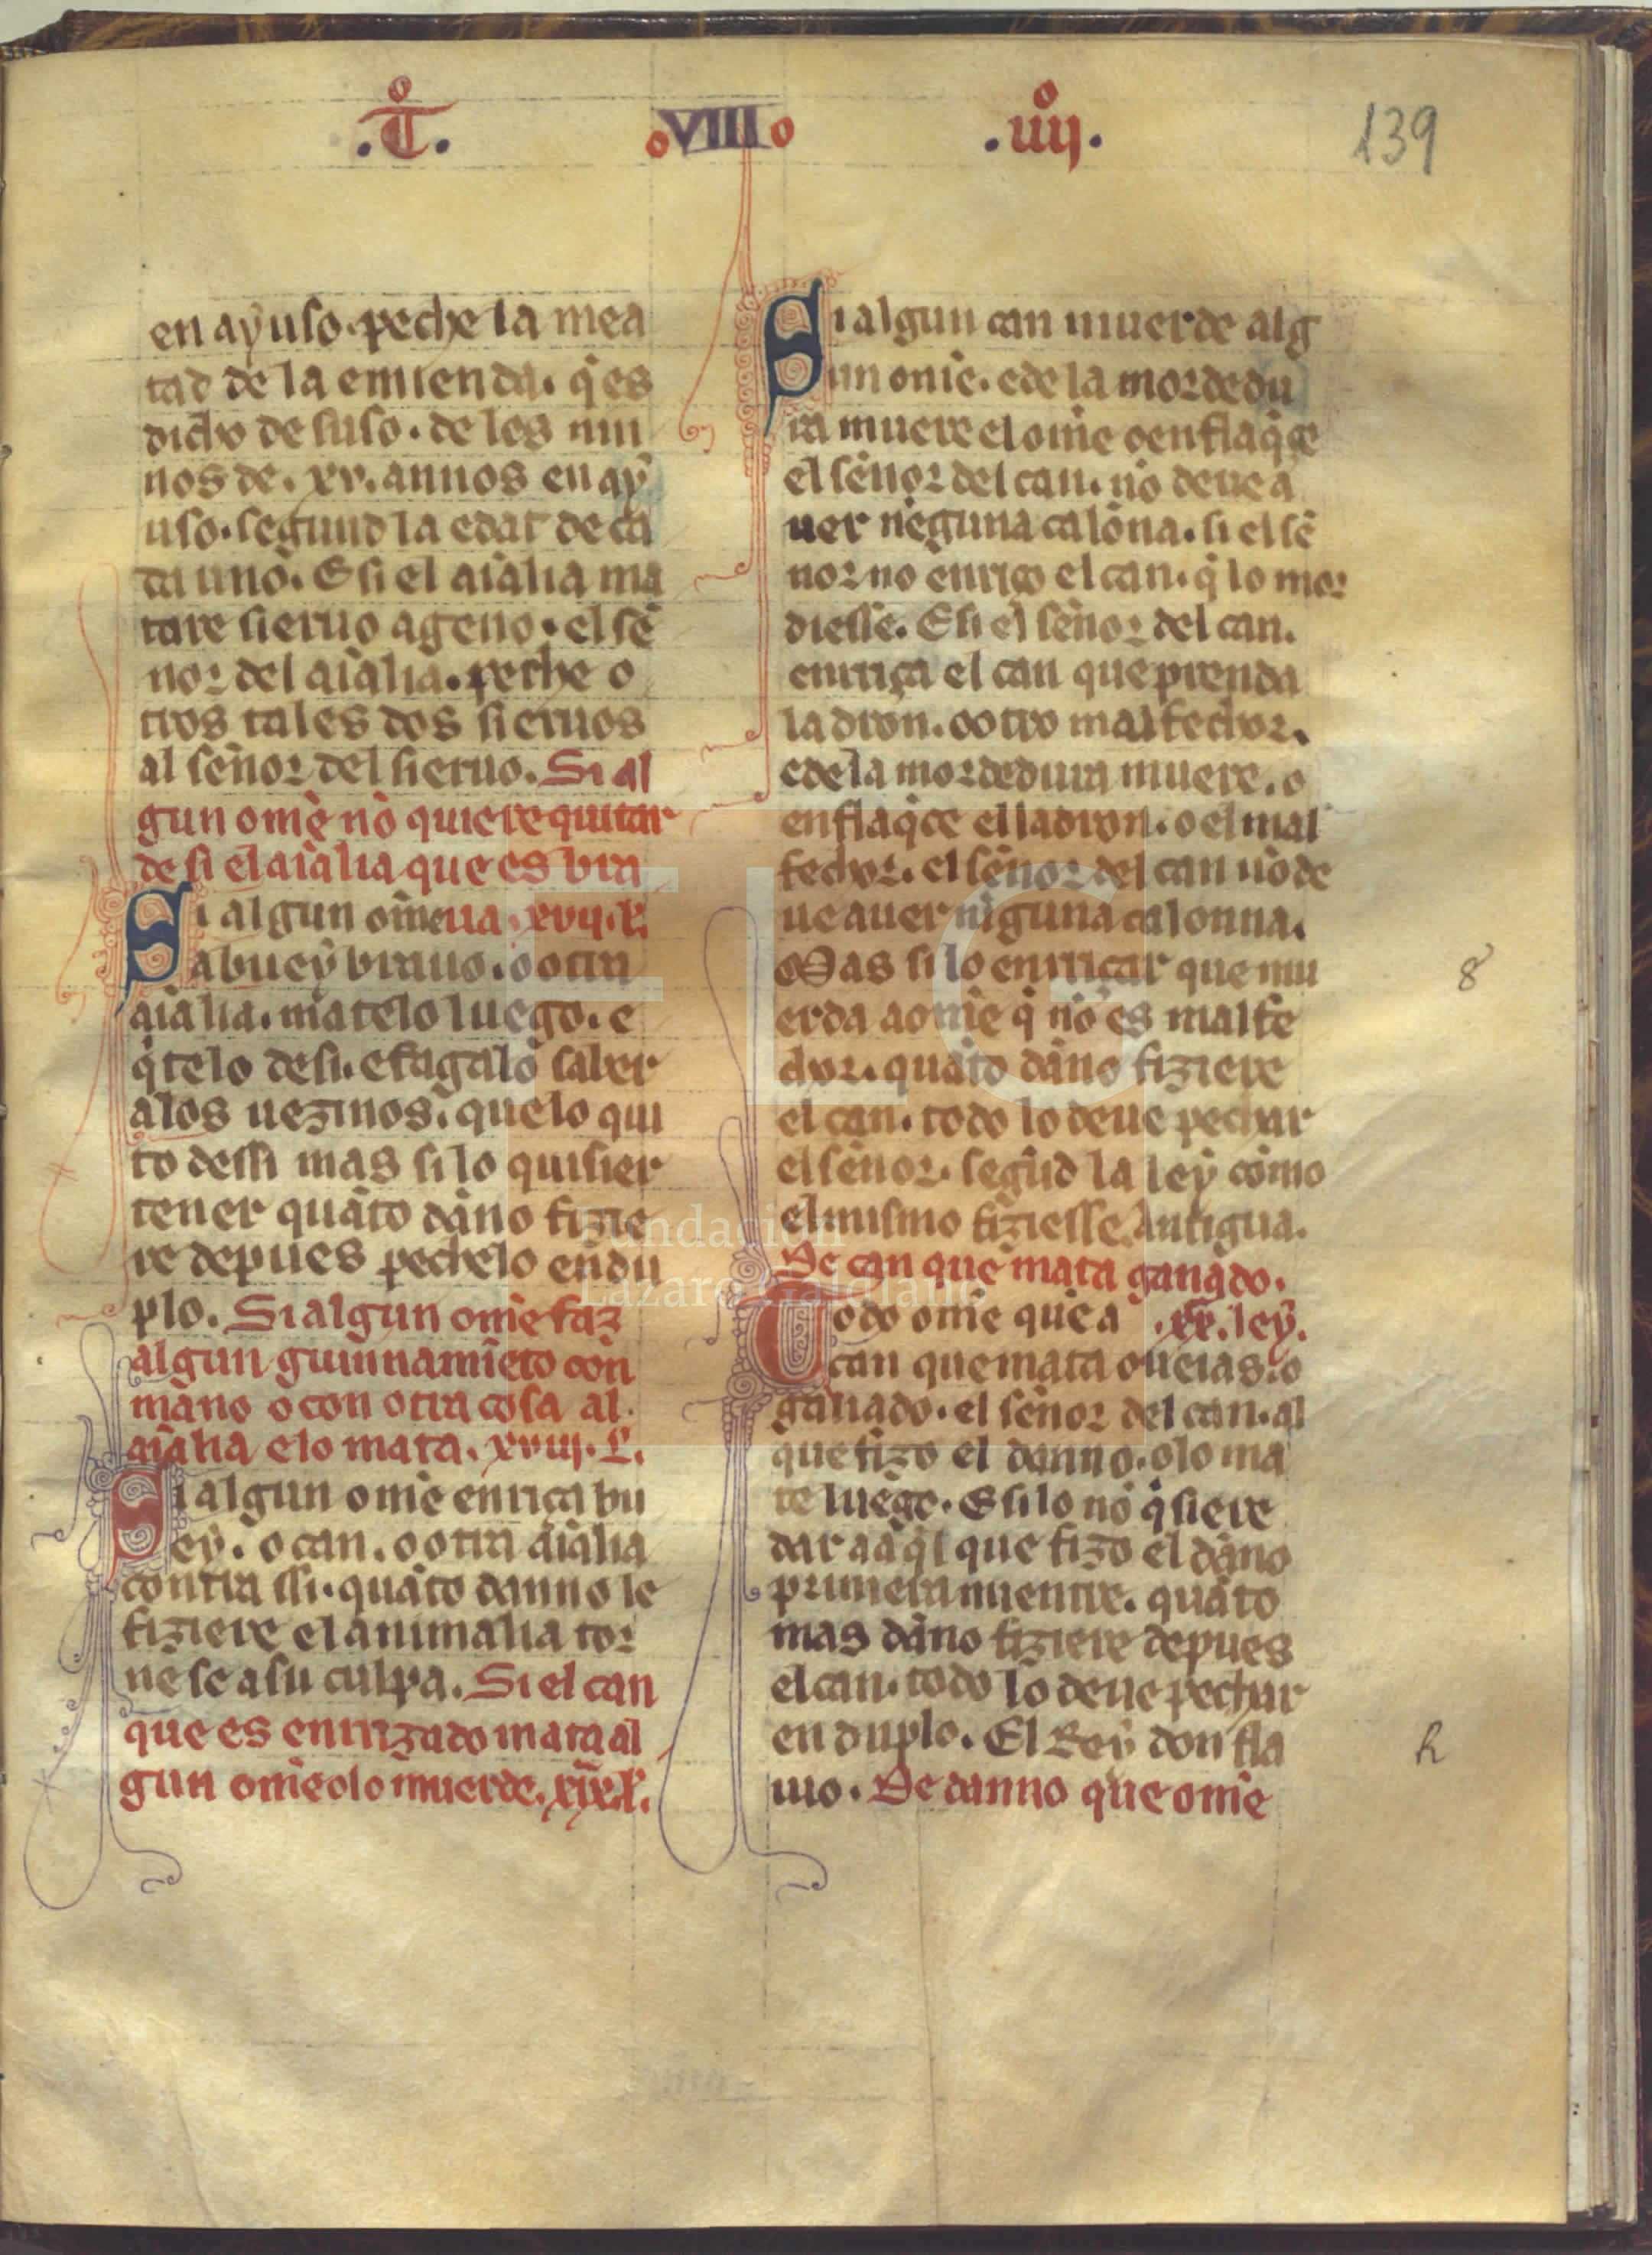 .T͡o. oVIIIo .iiijo. 139
en ayuso. peche la mea
tad de la emienda. q̇ es
dicho de suso. de los nin
nos de. xv. annos en aẏ
uso. segund la edat de ca
da uno. E si el aīalia ma
tare sieruo ageno. el sē
nor del aīalia. peche o
tros tales dos sieruos
al sēnor del sieruo. Si al
gun ome no quiere quitar
de si el aīalia que es bra
Si algun ome ua. xvij. L.
a buey brauo. o otra
aīalia. matelo luego. e
q̇telo de si. e fagalo saber
a los uezinos. que lo qui
to dessi mas si lo quisier
tener quāto dāno fizie
re depues pechelo en du
plo. Si algun ome faz
algun guinnamiēto con
mano o con otra cosa al
aīalia e lo mata. xviij. L.
Si algun ome enriça bu
ey. o can. o otra aīalia
contra ssi. quāto danno le
fiziere el animalia tor
ne se a su culpa. Si el can
que es enrrizado mata al
gun ome o lo muerde. xix. L.
Si algun can muerde alg
un ome. e de la mordedu
ra muere el ome o enflaq̇ce
el sēnor del can. nō deue a
uer neguna calōna. si el sē
nor no enriço el can. q̇ lo mor
diesse. E si el sēnor del can.
enrriça el can que prenda
ladron. o otro malfechor.
e de la mordedura muere. o
enflaq̇ce el ladron. o el mal
fechor. el sēnor del can nō de
ue auer niguna calonna.
Mas si lo enrriçar que mu
erda a ome q̇ nō es malfe
chor. quāto dāno fiziere
el can. todo lo deue pechar
el sēnor. segūd la ley cōmo
el mismo fiziesse. Antigua.
De can que mata ganado.
Todo ome que a .xx. ley.
can que mata oueias. o
ganado. el sēnor del can. al
que fizo el danno. o lo ma
te luego. E si lo nō q̇siere
dar a aq̇l que fizo el dāno
primera mientre. quāto
mas dāno fiziere depues
el can. todo lo deue pechar
en duplo. El Rey don fla
uio. De danno que ome
8
h
FLG
Fundación
Lázaro Galdiano